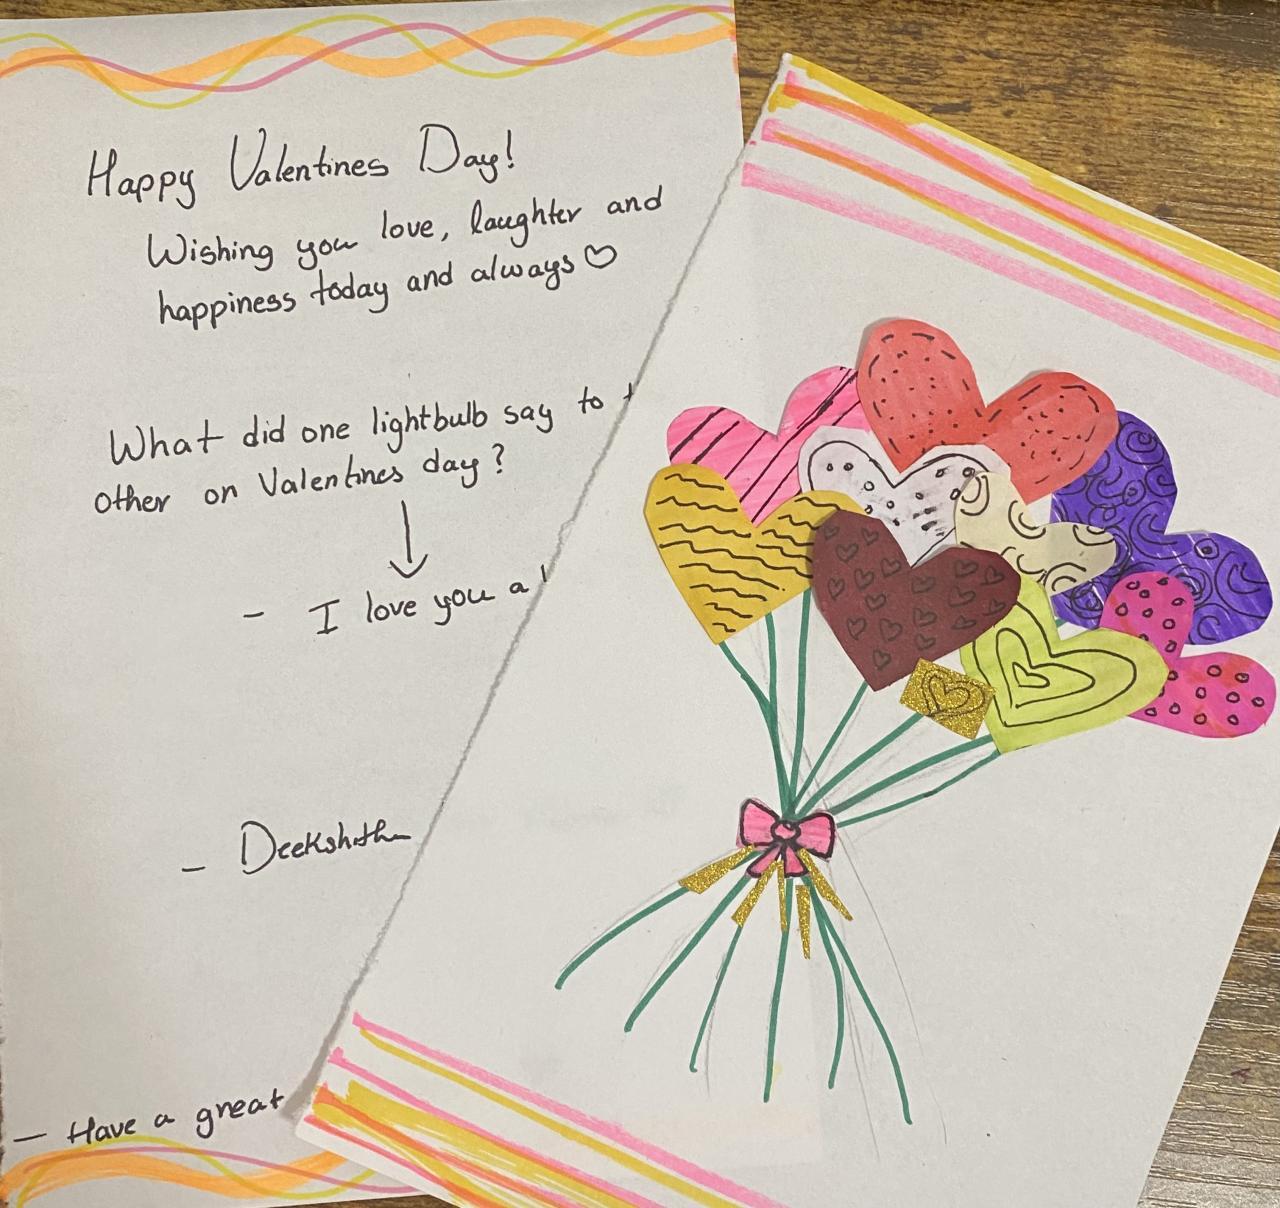 Happy Valentines Day!
Wishing you love, laughter and
happiness today and always♡
What did one lightbulb say to
other on Valentines day?
- I love you a
- Deekshith
- Have a great